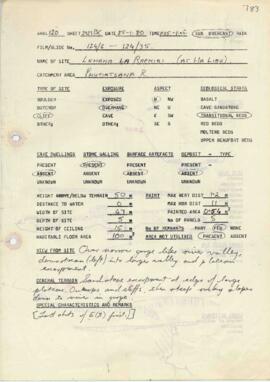 783
AREA 120 SHEET 2927DE DATE 25-1-80 TIME RAIN
FILM/SLIDE No. 124/6 - 124/35
NAME OF SITE LEHAHA LA
CATCHMENT AREA PHUTIATSANA R.
TYPE OF SITE EXPOSURE ASPECT GEOLOGICAL STRATA
BOULDER EXPOSED N NW BASALT
OVERHANG DENSE S SW CAVE SANDSTONE
CLIFF CAVE E NE TRANSITIONAL BEDS
OTHER: OTHER: SE W RED BEDS
MOLTENO BEDS
UPPER BEAUFORT BEDS
CAVE DWELLINGS STONE WALLING SURFACE ARTEFACTS DEPOSIT - TYPE
PRESENT PRESENT PRESENT PRESENT
ABSENT ABSENT ABSENT ABSENT
UNKNOWN UNKNOWN UNKNOWN
HEIGHT ABOVE/BELOW TERRAIN 50 M PAINT MAX VERT DIST M
DISTANCE TO WATER 0 M MAX HOR DIST 11 M
WIDTH OF SITE 67 M PAINTED AREA
DEPTH OF SITE 5 M No OF PANELS 5
HEIGHT OF CEILING 15 M No OF REMNANTS MANY FEW NONE
HABITABLE FLOOR AREA 100 M² AREA NOT UTILIZED PRESENT ABSENT
VIEW FROM SITE Over narrow gorge like river valley,
downstream (left) into larger valley and
escarpment.
GENERAL TERRAIN Sandstone escarpment at edge of large
plateau. Outcrops and cliffs, then steep valley slopes
down to river in gorge
SPECIAL CHARACTERISTICS AND REMARKS